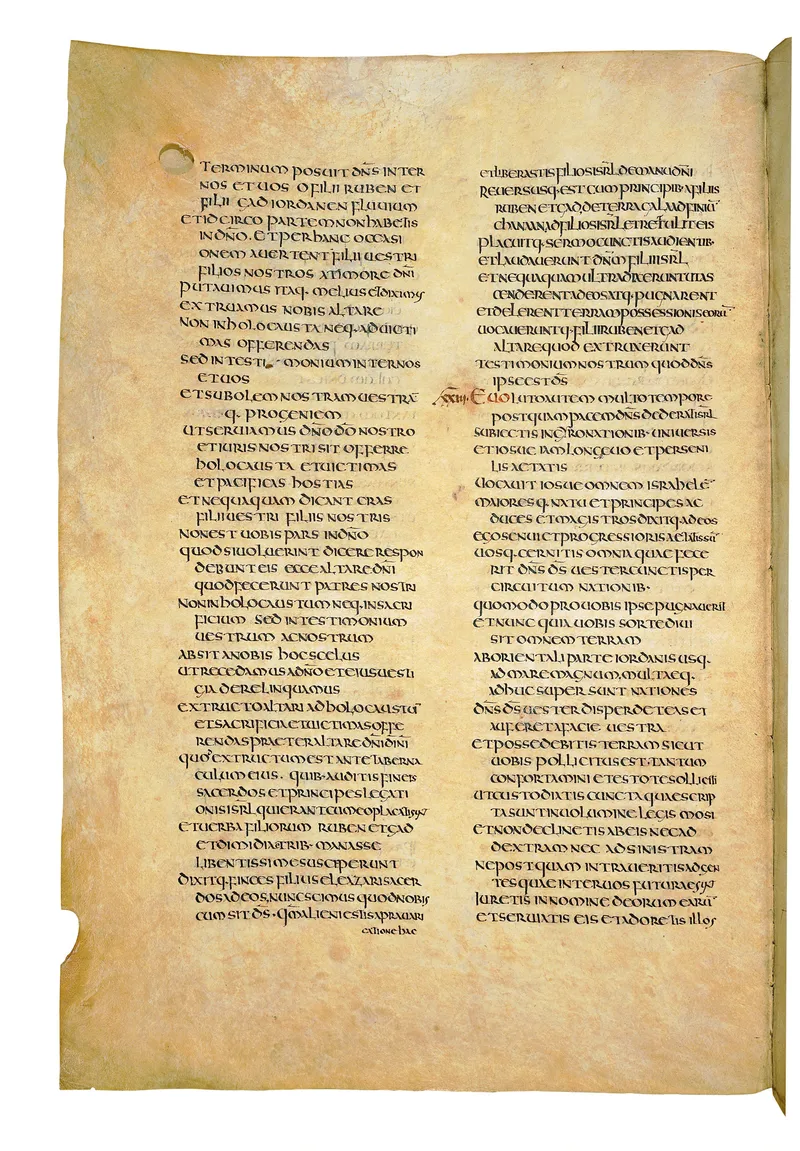 TERMINUM POSUIT DN̄S INTER
NOS ET UOS O FILII RUBEN ET
FILII GAD IORDANEN FLUUIUM
ET IDCIRCO PARTEM NON HABETIS
IN DN̄O. ET PER HANC OCCASI
ONEM AUERTENT FILII UESTRI
FILIOS NOSTROS A TIMORE DN̄I
PUTAUIMUS ITAQ· MELIUS ET DIXIMUS
EXTRUAMUS NOBIS ALTARE
NON IN HOLOCAUSTA NEQ· AD UICTI
MAS OFFERENDAS
SED IN TESTIMONIUM INTER NOS
ET UOS
ET SUBOLEM NOSTRAM UESTRĀ
Q· PROGENIEM
UT SERUIAMUS DN̄O DŌ NOSTRO
ET IURIS NOSTRI SIT OFFERRE
HOLOCAUSTA ET UICTIMAS
ET PACIFICAS HOSTIAS
ET NEQUAQUAM DICANT CRAS
FILII UESTRI FILIIS NOSTRIS
NON EST UOBIS PARS IN DN̄O
QUOD SI UOLUERINT DICERE RESPON
DEBUNT EIS ECCE ALTARE DN̄I
QUOD FECERUNT PATRES NOSTRI
NON IN HOLOCAUSTUM NEQ· IN SACRI
FICIUM SED IN TESTIMONIUM
UESTRUM AC NOSTRUM
ABSIT A NOBIS HOC SCELUS
UT RECEDAMUS A DN̄O ET EIUS UESTI
GIA DERELINQUAMUS
EXTRUCTO ALTARI AD HOLOCAUSTŪ
ET SACRIFICIA ET UICTIMAS OFFE
RENDAS PRAETER ALTARE DN̄I DĪNI
QUOD EXTRUCTUM EST ANTE TABERNA
CULUM EIUS. QUIB· AUDITIS FINEES
SACERDOS ET PRINCIPES LEGATI
ONIS ISR̄L QUI ERANT CUM EO PLACATI SUNT
ET UERBA FILIORUM RUBEN ET GAD
ET DIMIDIAE TRIB· MANASSE
LIBENTISSIME SUSCEPERUNT
DIXITQ· FINEES FILIUS ELEAZARI SACER
DOS AD EOS, NUNC SCIMUS QUOD NOBIS
CUM SIT DS̄· QM̄ ALIENI ESTIS A PRAUARI
CATIONE HAC
ET LIBERASTIS FILIOS ISR̄L DE MANU DN̄I
REUERSUSQ· EST CUM PRINCIPIB· A FILIIS
RUBEN ET GAD, DE TERRA GALAAD FINIŪ
CHANAN AD FILIOS ISR̄L ET RETTULIT EIS
PLACUITQ· SERMO CUNCTIS AUDIENTIB·
ET LAUDAUERUNT DN̄M FILII ISR̄L
ET NEQUAQUAM ULTRA DIXERUNT UT AS
CENDERENT AD EOS ATQ· PUGNARENT
ET DELERENT TERRAM POSSESSIONIS EORŪ
UOCAUERUNTQ· FILII RUBEN ET GAD
ALTARE QUOD EXTRUXERUNT
TESTIMONIUM NOSTRUM QUOD DN̄S
IPSE EST DS̄
XXIII· EUOLUTO AUTEM MULTO TEMPORE
POSTQUAM PACEM DN̄S DEDERAT ISR̄L
SUBIECTIS IN GYRO NATIONIB· UNIUERSIS
ET IOSUE IAM LONGEUO ET PERSENI
LIS AETATIS
UOCAUIT IOSUE OMNEM ISRAHELĒ
MAIORESQ· NATU ET PRINCIPES AC
DUCES ET MAGISTROS DIXITQ· AD EOS
EGO SENUI ET PROGRESSIORIS AETATIS SUM
UOSQ· CERNITIS OMNIA QUAE FECE
RIT DN̄S DS̄ UESTER CUNCTIS PER
CIRCUITUM NATIONIB·
QUOMODO PRO UOBIS IPSE PUGNAUERIT
ET NUNC QUIA UOBIS SORTE DIUI
SIT OMNEM TERRAM
AB ORIENTALI PARTE IORDANIS USQ·
AD MARE MAGNUM, MULTAEQ·
ADHUC SUPERSUNT NATIONES
DN̄S DS̄ UESTER DISPERDET EAS ET
AUFERET A FACIE UESTRA
ET POSSEDEBITIS TERRAM SICUT
UOBIS POLLICITUS EST· TANTUM
CONFORTAMINI ET ESTOTE SOLLICITI
UT CUSTODIATIS CUNCTA QUAE SCRIP
TA SUNT IN UOLUMINE LEGIS MOSI
ET NON DECLINETIS AB EIS NEC AD
DEXTRAM NEC AD SINISTRAM
NE POSTQUAM INTRAUERITIS AD GEN
TES QUAE INTER UOS FUTURAE SUNT
IURETIS IN NOMINE DEORUM EARŪ
ET SERUIATIS EIS ET ADORETIS ILLOS